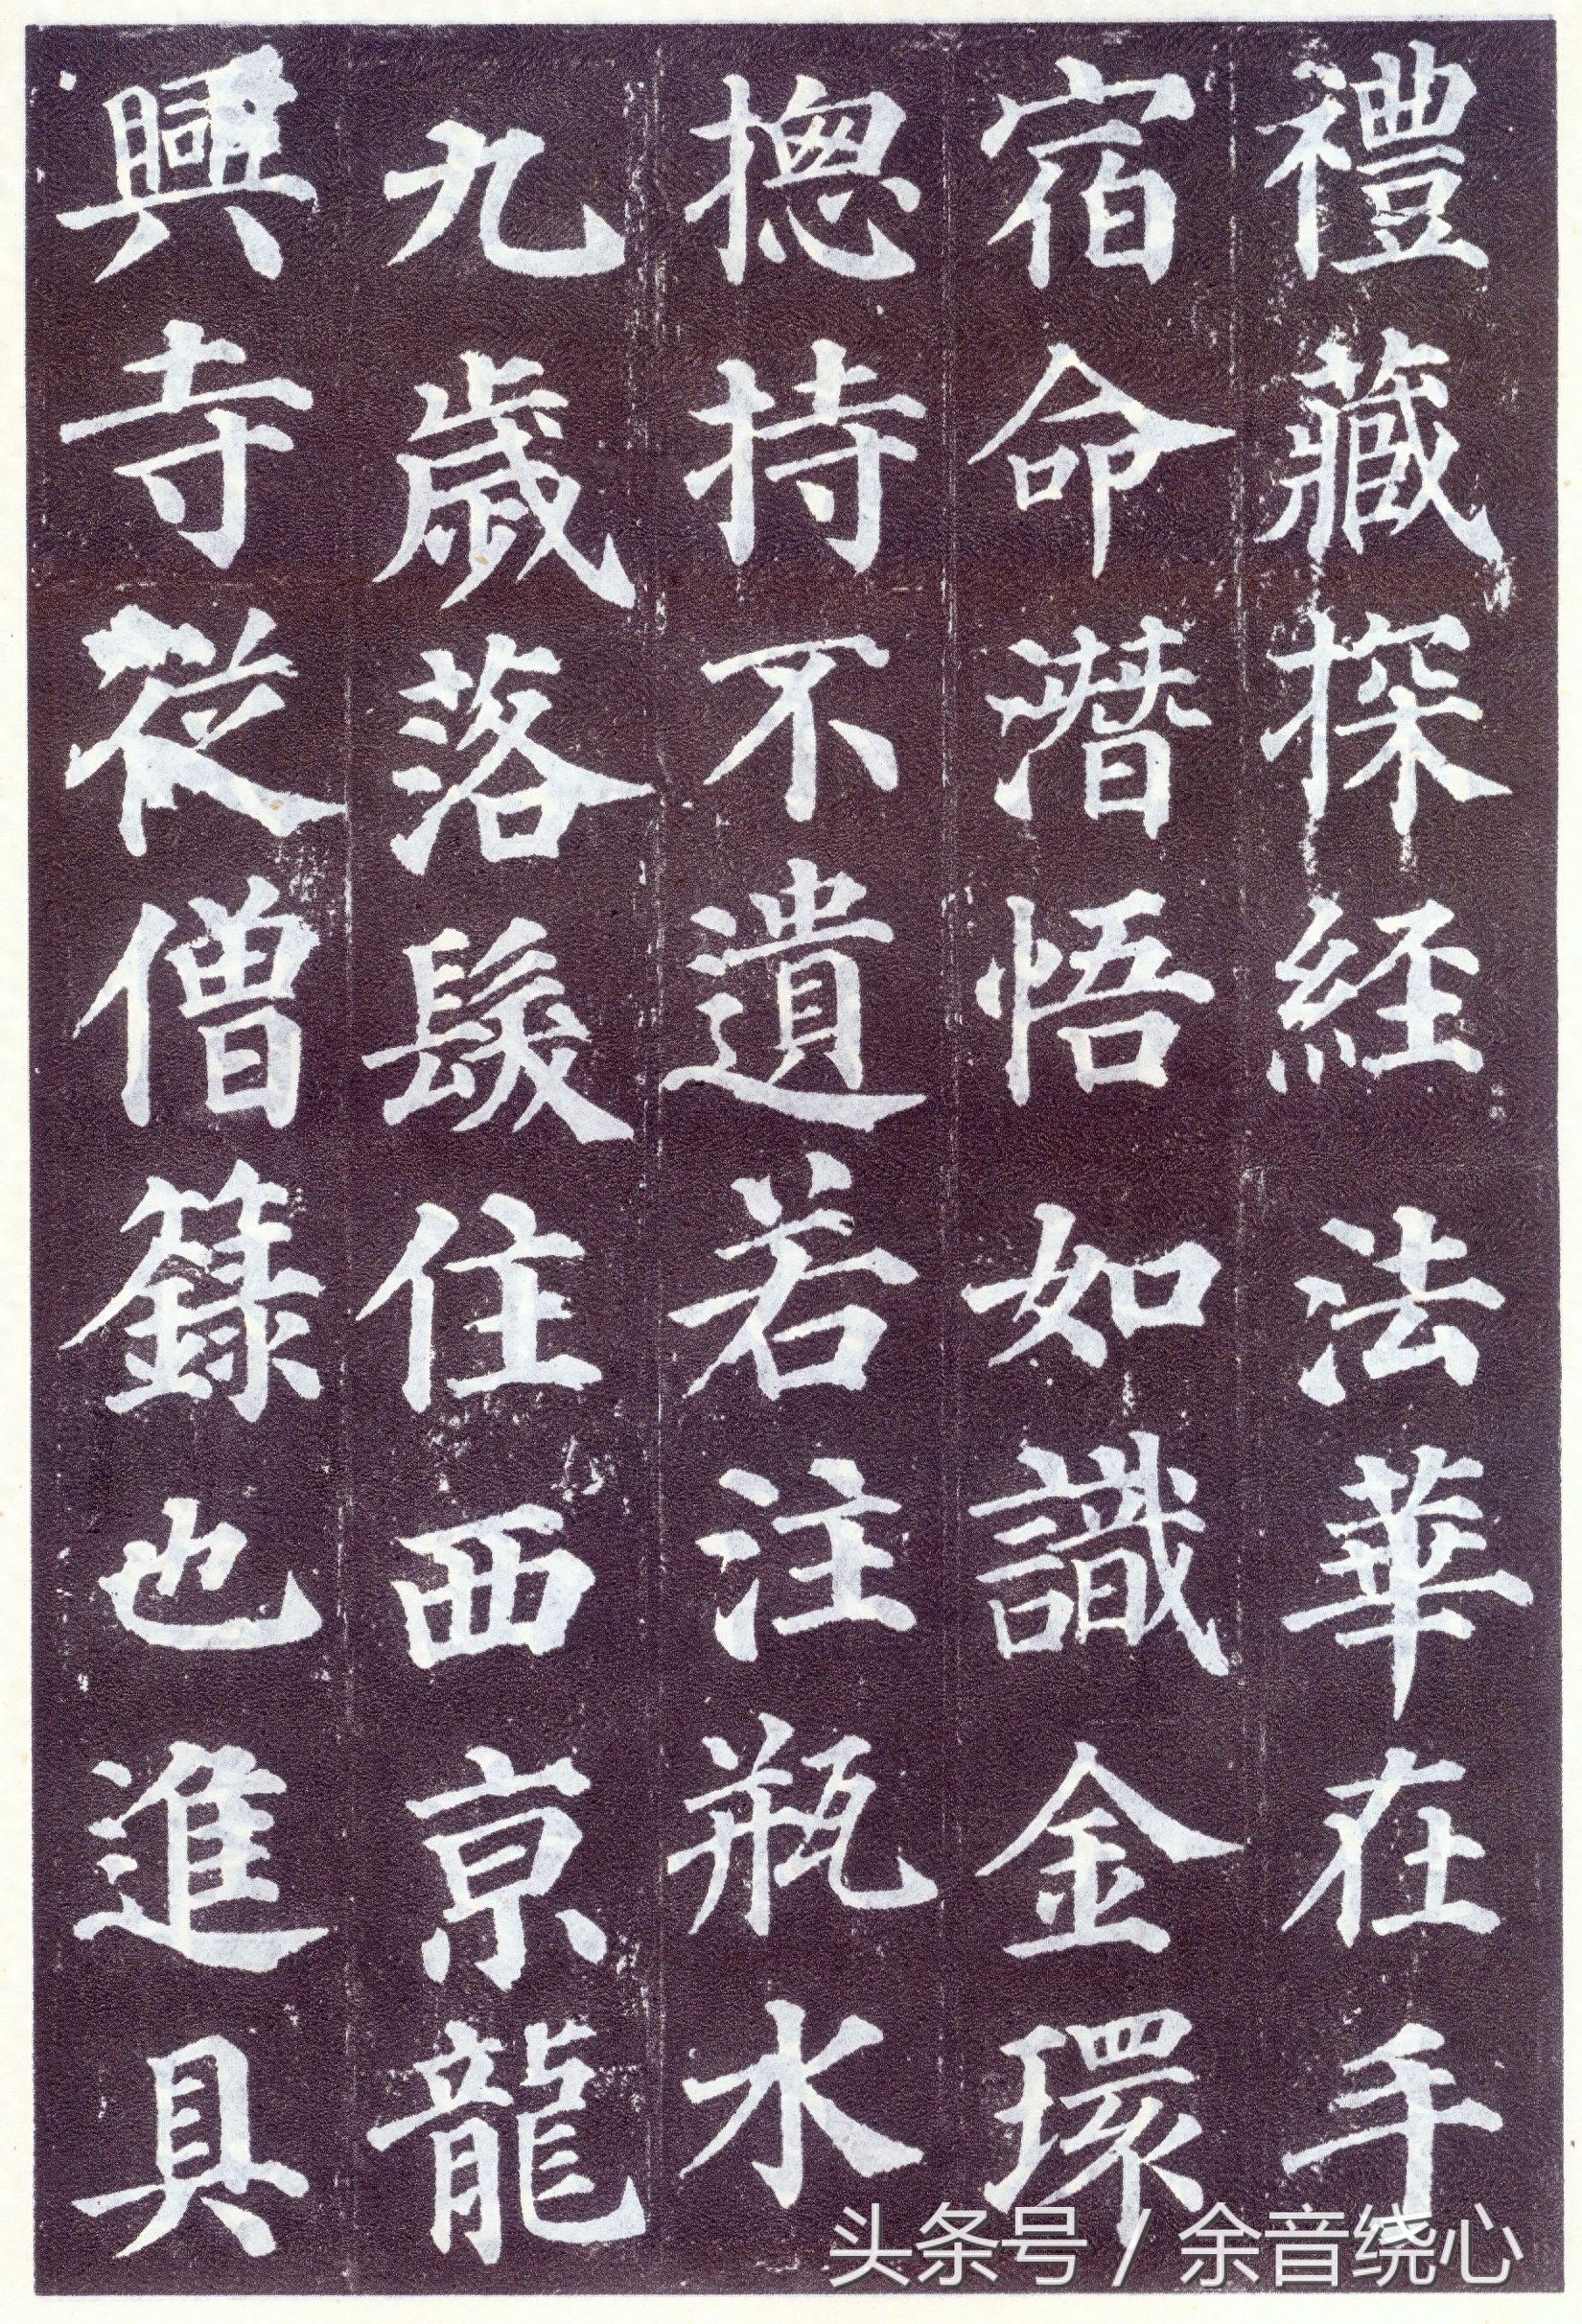 禮藏探經法華在手
宿命潛悟如識金環
揔持不遺若注瓶水
九歲落髮住西京龍
興寺從僧籙也進具
头条号 / 余音绕心